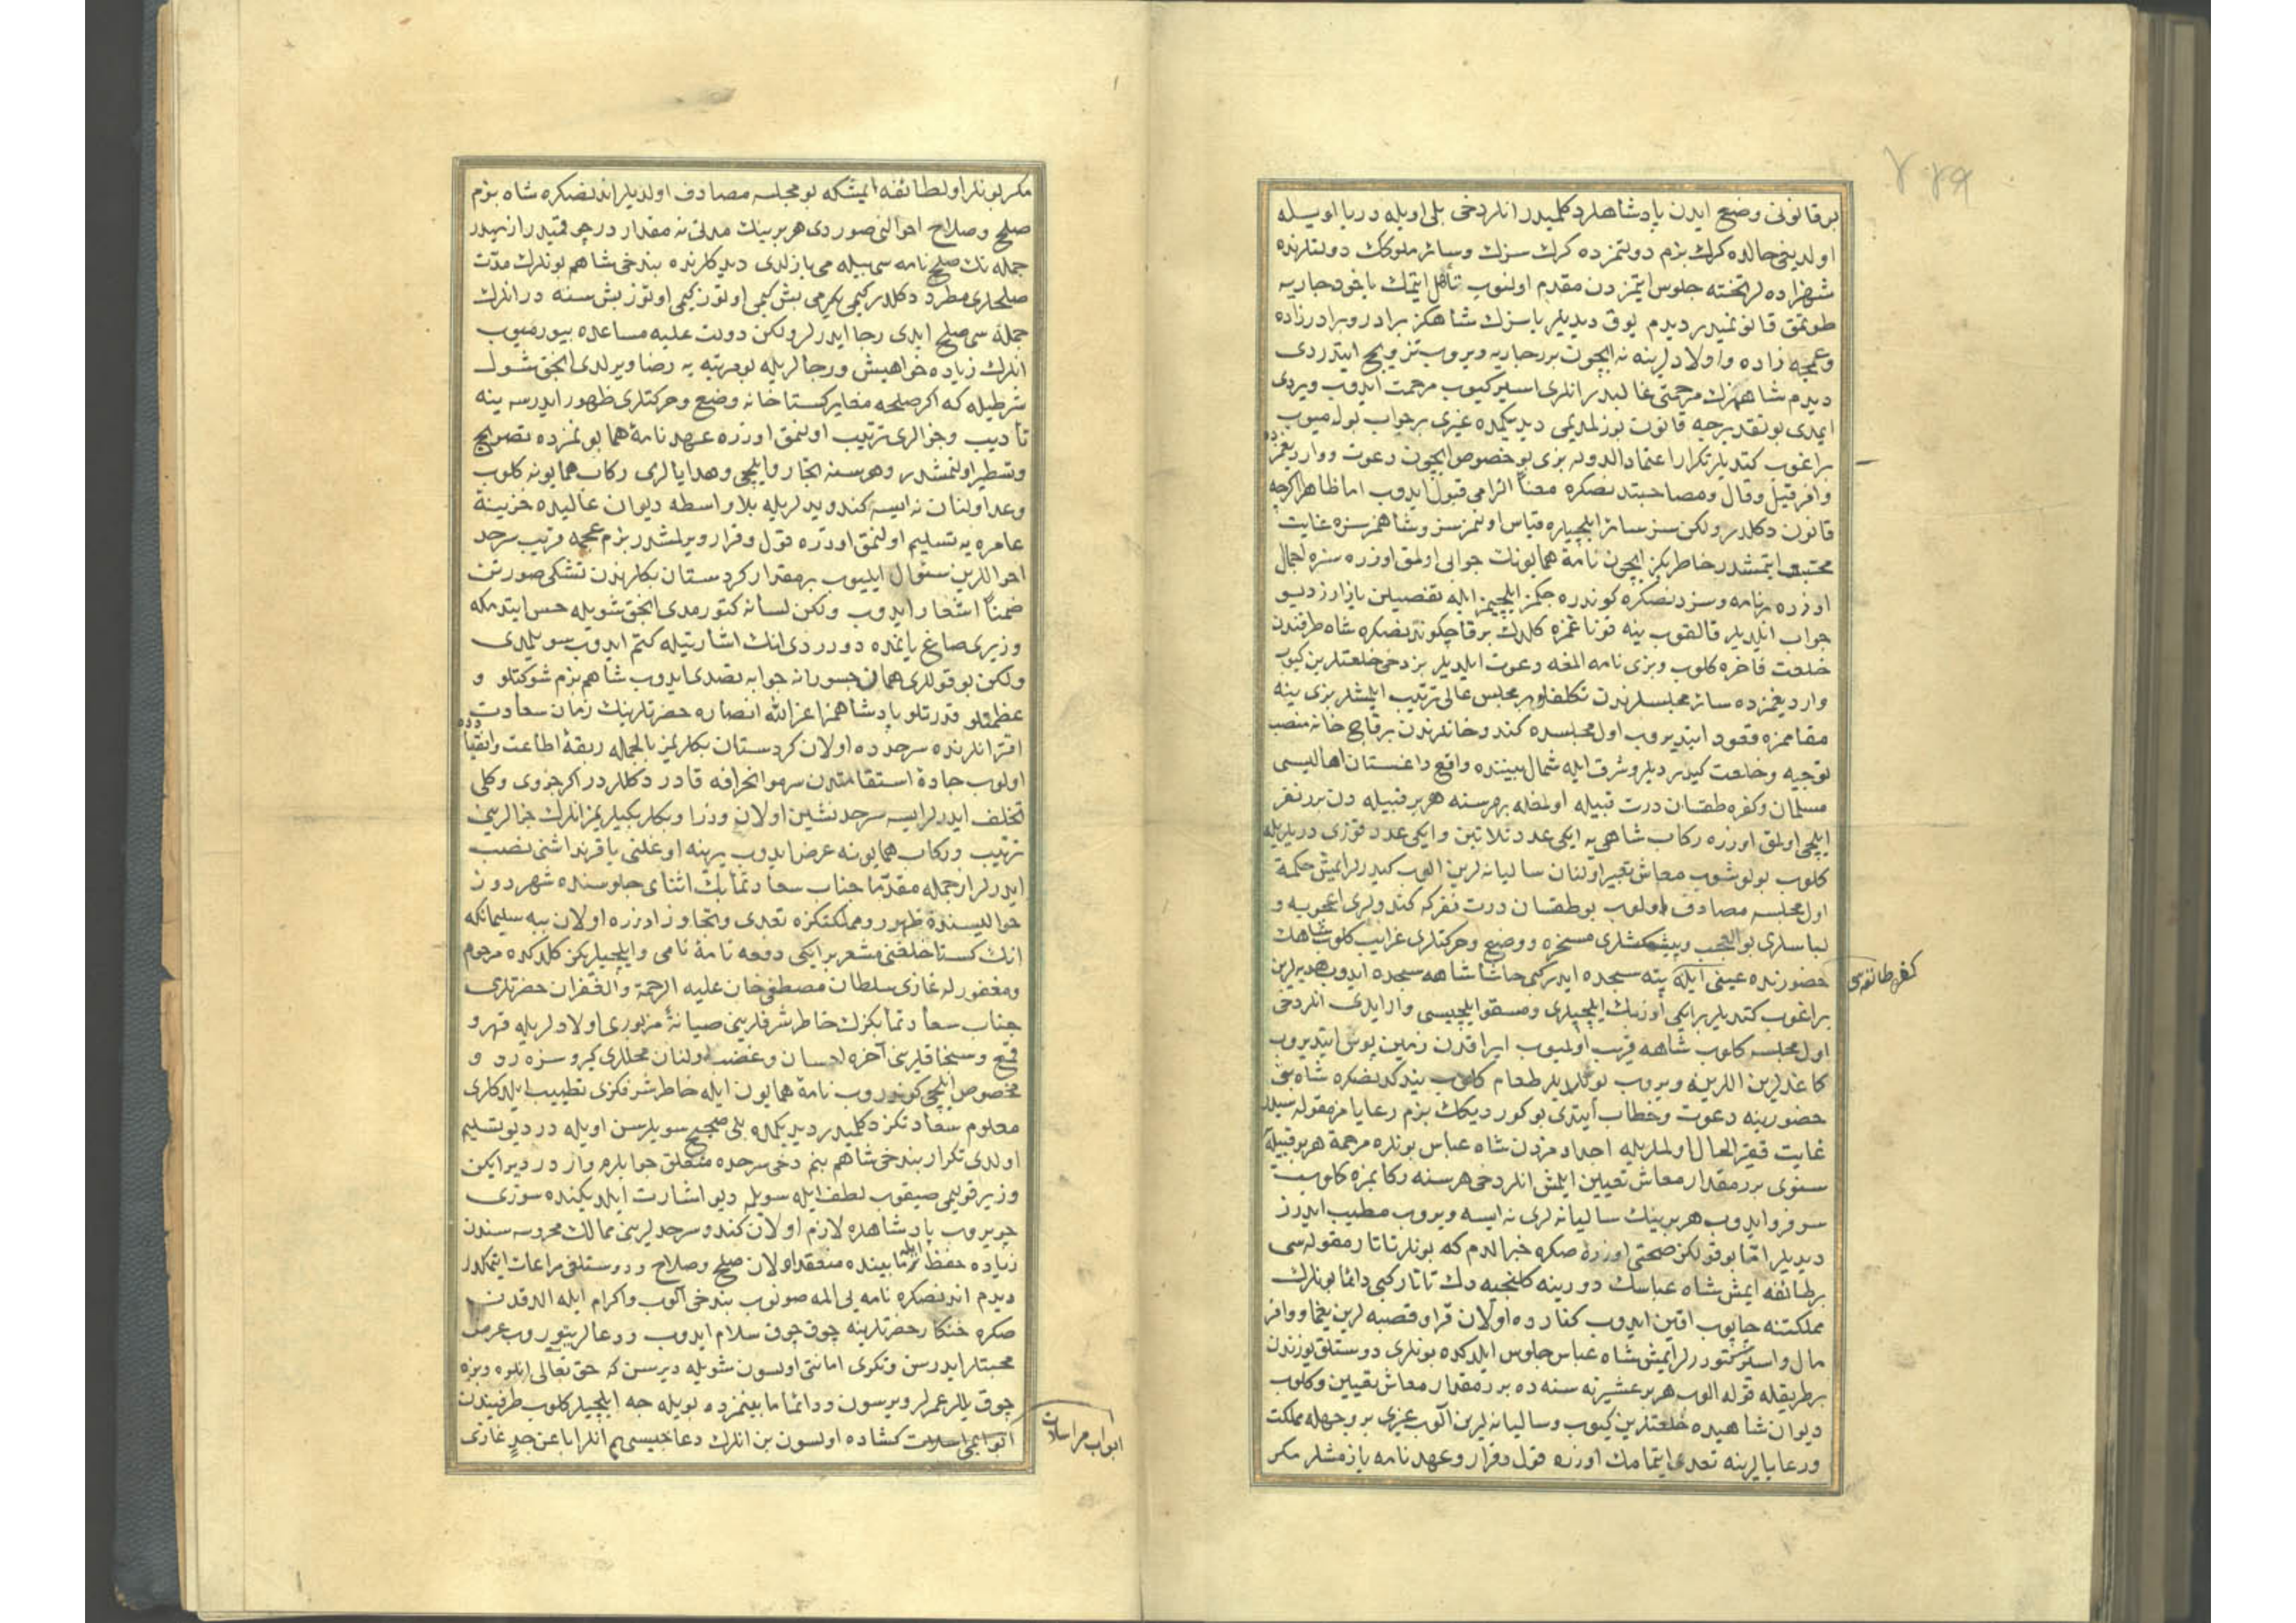 بو قانونی وضع ایدن پادشاهلر دكلمیدر انلر دخی بلی اویله در یا اویله
اولدیغی حالده كرك بزم دولتمزده كرك سزك وسائر ملوكك دولتلرنده
شهزاده لر تخته جلوس ایتمزدن مقدم اولنوب تأهل ایتمك یاخود جاریه
طوتمق قانونمیدر دیدم یوق دیدیلر یا سزك شاهكز برادر وبرادرزاده
وعمجه زاده واولادلرینه نه ایچون برر جاریه ویروب تزویج ایتدردی
دیدم شاهمزك مرحمتی غالبدر انلری اسیركیوب مرحمت ایدوب ویردی
ایمدی بو تقدیرجه قانون بوزلمدیمی دیدیكمده غیری بر جواب بولمیوب
براغوب كتدیلر تكرار اعتماد الدوله بزی بو خصوص ایچون دعوت و واردیغمزده
وافر قیل وقال ومصاحبتدنصكره معناً الزامی قبول ایدوب اما ظاهرا اكرچه
قانون دكلدر ولكن سز سائر ایلچیلره قیاس اولنمزسز وشاهمز سزه غایت
محبت ایتمشدر خاطریكز ایچون نامهٔ همایونك جوابی اولمق اوزره سزه اجمال
اوزره بر نامه وسزدنصكره كوندره جكمز ایلچیمز ایله تفصیلن یازارز دیو
جواب ایلدیلر قالقوب ینه قوناغمزه كلدك بر قاچ كوندنصكره شاه طرفندن
خلعت فاخره كلوب وبزی نامه المغه دعوت ایلدیلر بز دخی خلعتلرین كیوب
واردیغمزده سائر مجلسلرندن تكلفلو بر مجلس عالی ترتیب ایلمشلر بزی ینه
مقاممزه قعود ایتدیروب اول مجلسده كندو خانلرندن بر قاچ خانه منصب
توجیه وخلعت كیدردیلر وشرق ایله شمال بیننده واقع داغستان اهالیسی
مسلمان وكفره طقسان درت قبیله اولمغله بهر سنه هر بر قبیله دن برر نفر
ایلچی اولمق اوزره ركاب شاهی یه ایكی عدد تلاتین وایكی عدد قوزی دریلریله
كلوب بولوشوب معاش تعبیر اولنان سالیانه لرین الوب كیدرلر ایمش حكمة
اول مجلسه مصادف اولوب بو طقسان درت نفر كه كندولری اعجوبه و
لباسلری بو العجب وپیشكشلری مسخره ووضع وحركتلری غرایب كلوب شاهك
حضورنده عینی ایله پته سجده ایدر كبی حاشا شاهه سجده ایدوب هدیه لرین
كفره طائفه سی
براغوب كتدیلر بر ایكی أوزبك ایلچیلری ومسقو ایلچیسی وار ایدی انلر دخی
اول مجلسه كلوب شاهه قریب اولمیوب ایراقدن زمین بوس ایتدیروب
كاغدلرین اللرینه ویروب یوللادیلر طعام كلوب یندكدنصكره شاه بنی
حضورینه دعوت وخطاب ایتدی بو كوردیكك بزم رعایامز مقوله سیدر
غایت فقیر الحال اولملریله اجدادمزدن شاه عباس بونلره مرحمة هر بر قبیله یه
سنوی برر مقدار معاش تعیین ایلمش انلر دخی هر سنه ركابمزه كلوب
سرفرو ایدوب هر برینك سالیانه لری نه ایسه ویروب مطیب ایدرز
دیدیلر امّا بو قولكز صحتی اوزره صكره خبر الدم كه بونلر تاتار مقوله سی
بر طائفه ایمش شاه عباسك دورینه كلنجیه دك تاتار كبی دائما بونلرك
مملكتنه چاپوب اقین ایدوب كنارده اولان قرا وقصبه لرین یغما و وافر
مال واسیر كتورر لر ایمش شاه عباس جلوس ایلدكده بونلری دوستلق یوزندن
بر طریقله قوله الوب هر بر عشیرته سنه ده برر مقدار معاش تعیین وكلوب
دیوان شاهیده خلعتلرین كیوب وسالیانه لرین آلوب غیری بر وجهله مملكت
ورعایالرینه تعدی ایتمامك اوزره قول وقرار وعهدنامه یازمشلر مكر
مكر بونلر اول طائفه ایمشكه بو مجلسه مصادف اولدیلر اندنصكره شاه بزم
صلح وصلاح احوالنی صوردی هر برینك مدتی نه مقدار در چوقمیدر ازمیدر
جمله نك صلحنامه سی بیله می یازلدی دیدكلرنده بندخی شاهم بونلرك مدّت
صلحلری مطرد دكلدر كیمی یكرمی بش كیمی اوتوز كیمی اوتوز بش سنه در انلرك
جمله سی صلح ابدی رجا ایدرلر ولكن دولت علیه مساعده بیورمیوب
انلرك زیاده خواهیش ورجالریله بو مرتبه یه رضا ویرلدی انجق شول
شرطیله كه اكر صلحه مغایر كستاخانه وضع وحركتلری ظهور ایدرسه ینه
تأدیب وجزالری ترتیب اولنمق اوزره عهدنامهٔ همایونمزده تصریح
وتسطیر اولنمشدر وهر سنه انجار وایلچی وهدایالری ركاب همایونه كلوب
وعد اولنان نه ایسه كندو یدلریله بلا واسطه دیوان عالیده خزینهٔ
عامره یه تسلیم اولنمق اوزره قول وقرار ویرلمشدر بزم عجمه قریب سرحد
احواللرین سئوال ایلیوب بر مقدار كردستان بكلرندن تشكی صورتن
ضمناً اشعار ایدوب ولكن لسانه كتورمدی انجق شویله حس ایتدمكه
وزیری صاغ یاننده دوردی انك اشارتیله كتم ایدوب سویلمدی
ولكن بو قوللری همان جسورانه جوابه تصدی ایدوب شاهم بزم شوكتلو و
عظمتلو قدرتلو پادشاهمز اعز الله انصاره حضرتلرینك زمان سعادت
اقترانلرنده سرحدده اولان كردستان بكلریمز بالجمله ربقهٔ اطاعت وانقیادده
اولوب جادهٔ استقامتدن سرمو انحرافه قادر دكللردر اكر جزوی وكلی
تخلف ایدرلر ایسه سرحدنشین اولان وزرا وبكلربكیلریمز انلرك جزالرینی
ترتیب وركاب همایونه عرض ایدوب یرینه اوغلنی یا قرنداشنی نصب
ایدرلر از جمله مقدّما جناب سعادتمآبك اثنای جلوسنده شهرزور
حوالیسنده ظهور ومملكتكزه تعدی وتجاوز اوزره اولان ببه سلیمانكه
انك كستاخلغنی مشعر بر ایكی دفعه نامهٔ نامی وایلچیلریكز كلدكده مرحوم
ومغفور له غازی سلطان مصطفی خان علیه الرحمة والغفران حضرتلری
جناب سعادتمآبكزك خاطر شرفلرینی صیانةً مزبوری اولادلریله قهر و
قمع وسنجاقلرینی آخره احسان وغضب اولنان محللری كیرو سزه رد و
مخصوص ایلچی كوندروب نامهٔ همایون ایله خاطر شرفكزی تطییب ایلدكلری
معلوم سعادتكز دكلمیدر دیدیكمده بلی صحیح سویلرسن اویله در دیو تسلیم
اولدی تكرار بندخی شاهم بنم دخی سرحده متعلق جوابلرم واردر دیر ایكن
وزیر قولیمی صیقوب لطف ایله سویله دیو اشارت ایلدیكنده سوزی
چویروب پادشاهده لازم اولان كندو سرحدلرینی ممالك محروسه سندن
زیاده حفظ ایله مابینده منعقد اولان صلح وصلاح ودوستلغی مراعات ایتمكدر
دیدم اندنصكره نامه یی المه صونوب بندخی آلوب واكرام ایله الدقدن
صكره خنكار حضرتلرینه چوق چوق سلام ایدوب ودعالر یتوروب عرض
محبتلر ایدرسن وتكری امانتی اولسون شویله دیرسن كه حق تعالی انلره وبزه
چوق یللر عمرلر ویرسون ودائما مابینمزده بویله جه ایلچیلر كلوب طرفیندن
ابواب مراسلات
كشاده اولسون بن انلرك دعاجیسی یم انلر ابا عن جدٍ غازی